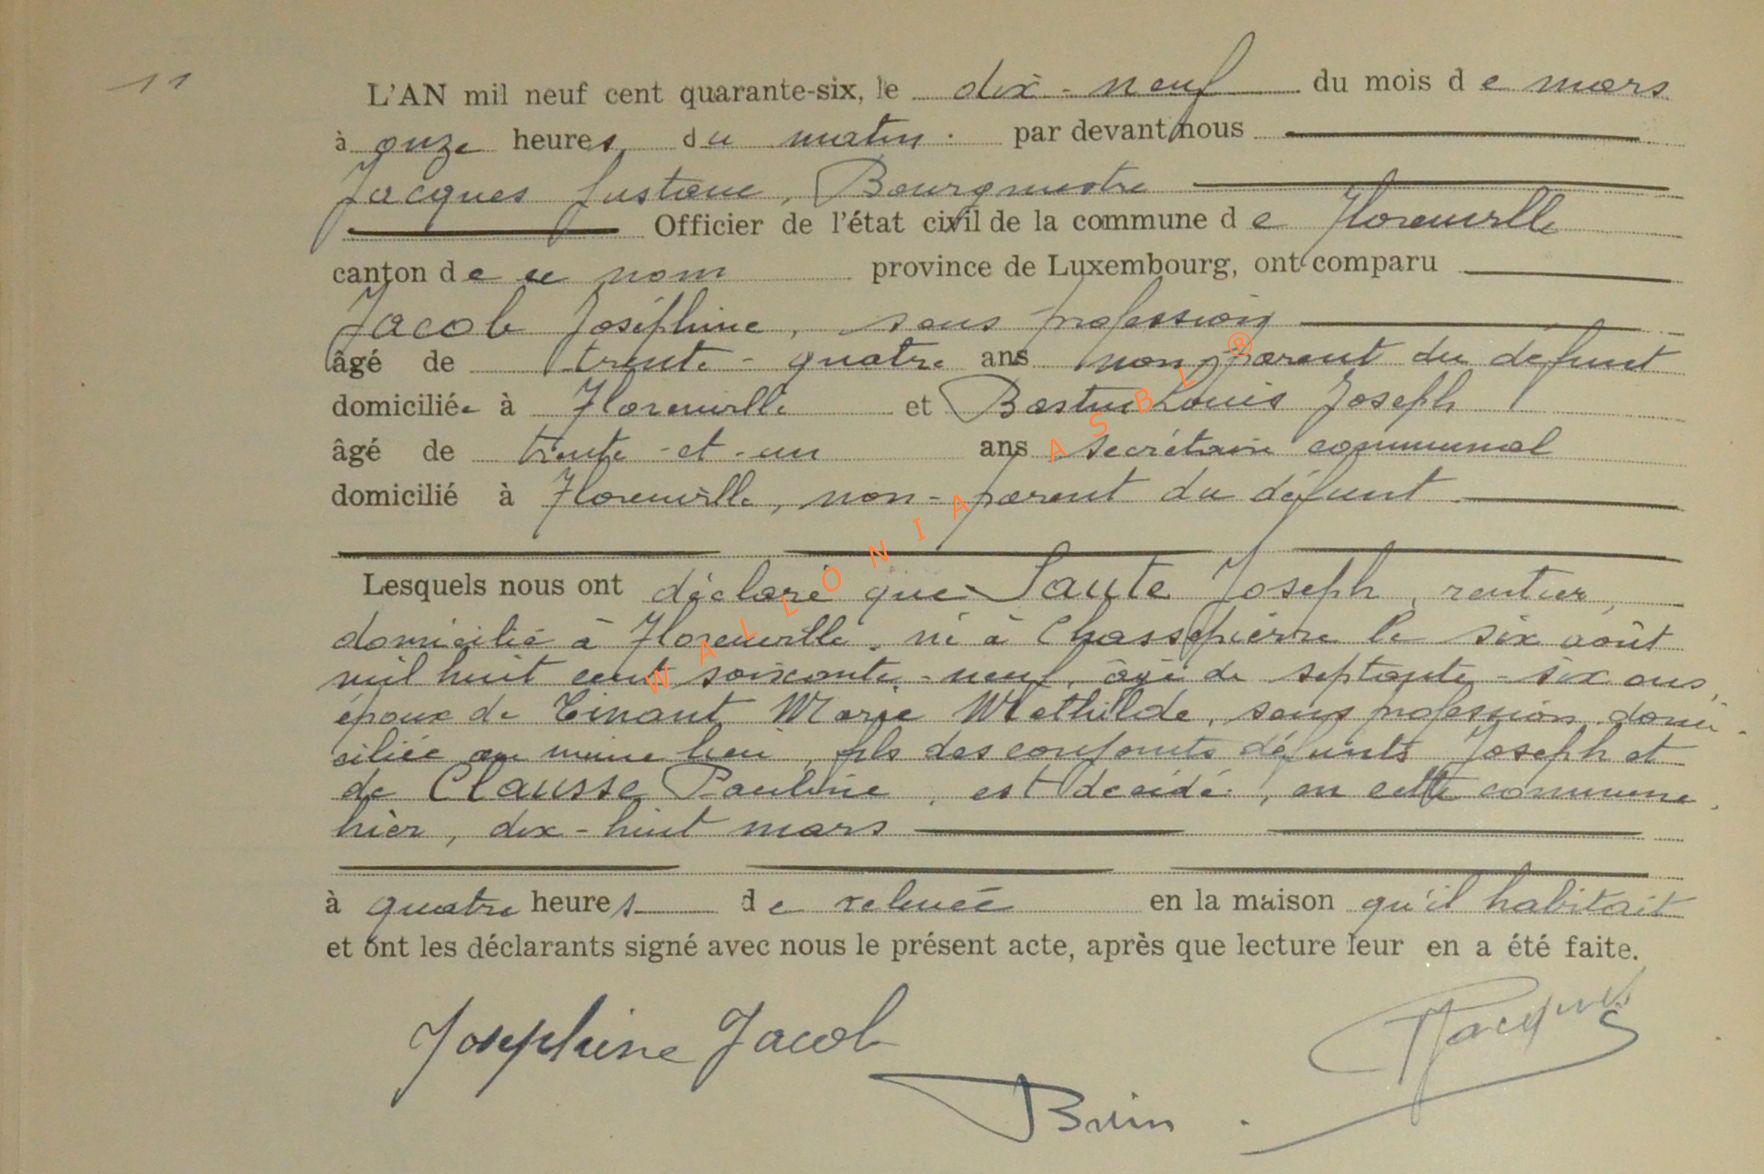 11
L'AN mil neuf cent quarante-six, le dix-neuf du mois de mars
à onze heures du matin. par devant nous
Jacques Gustave, Bourgmestre
Officier de l'état civil de la commune de Florenville
canton de ce nom province de Luxembourg, ont comparu
Jacob Joséphine, sans profession
âgé de trente-quatre ans non parent du défunt
domiciliée à Florenville et Bastin Louis Joseph
âgé de trente-et-un ans secrétaire communal
domicilié à Florenville, non-parent du défunt
Lesquels nous ont déclaré que Saute Joseph, rentier,
domicilié à Florenville, né à Chassepierre le six août
mil huit cent soixante-neuf, âgé de septante-six ans,
époux de Tinant Marie Mathilde, sans profession, domi-
ciliée au même lieu, fils des conjoints défunts Joseph et
de Clausse Pauline, est décédé, en cette commune,
hier, dix-huit mars
à quatre heures de relevée en la maison qu'il habitait
et ont les déclarants signé avec nous le présent acte, après que lecture leur en a été faite.
Josephine Jacob
Jacques
WALLONIA ASBL ®